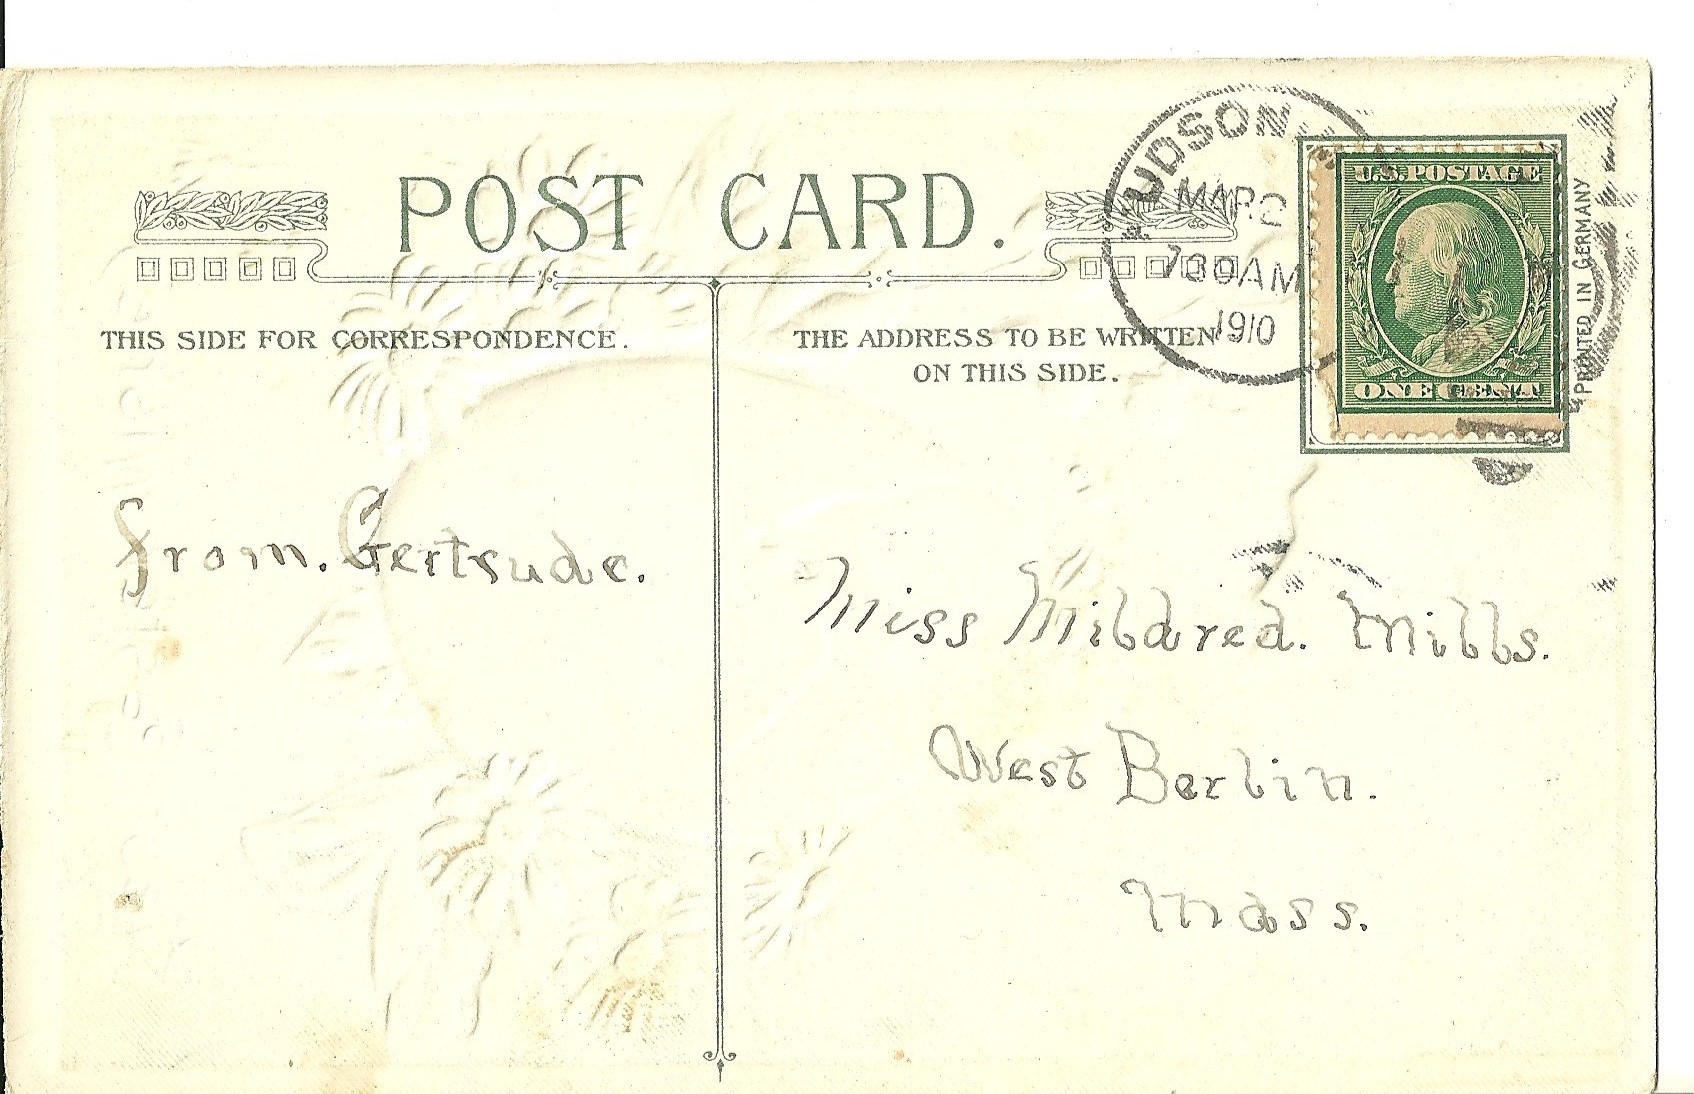 POST CARD.
THIS SIDE FOR CORRESPONDENCE.
THE ADDRESS TO BE WRITTEN
ON THIS SIDE.
UDSON
MAR 2
730AM
1910
U.S. POSTAGE
ONE CENT
PRINTED IN GERMANY
From. Gertrude.
Miss Mildred. Mills.
West Berlin.
Mass.